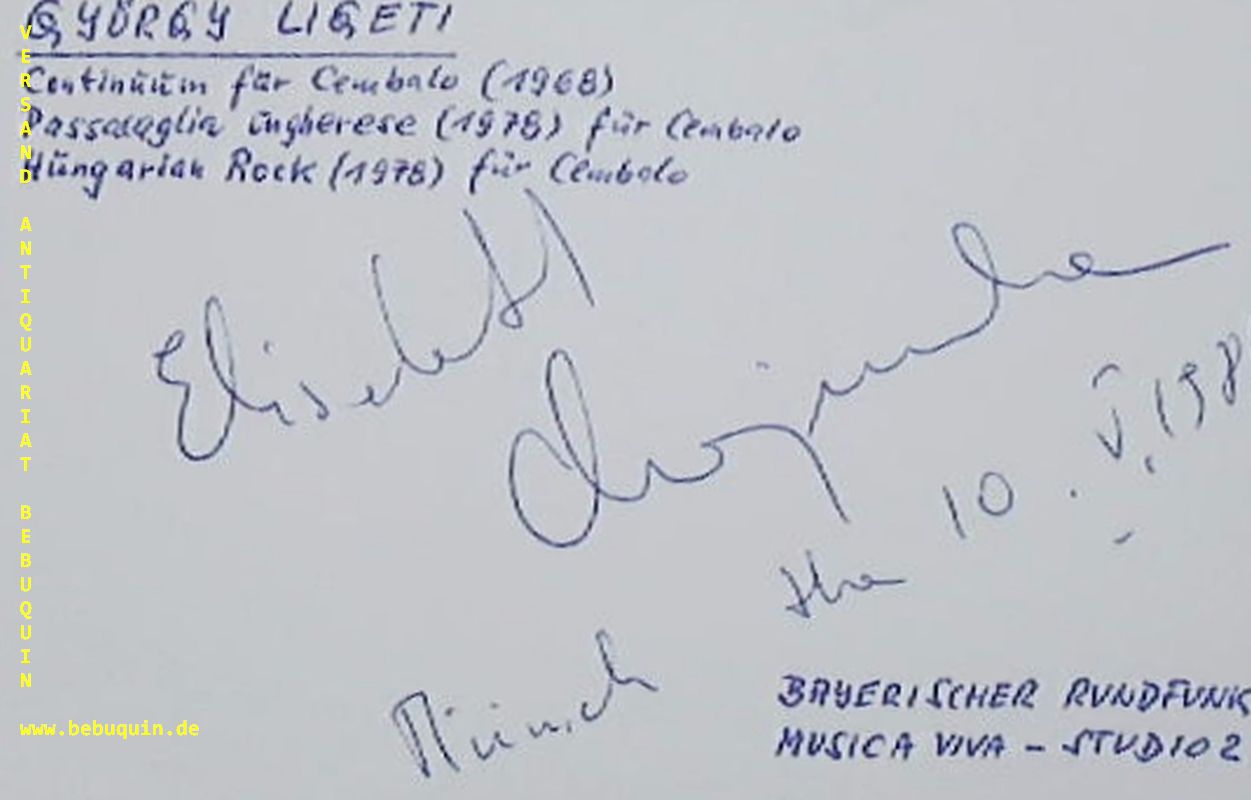 GYÖRGY LIGETI
Continuum für Cembalo (1968)
Passacaglia ungherese (1978) für Cembalo
Hungarian Rock (1978) für Cembalo
Elisabeth
Chojnacka
10. V. 198
the
Münich
BAYERISCHER RUNDFUNK
MUSICA VIVA - STUDIO 2
VERSAND ANTIQUARIAT BEBUQUIN
www.bebuquin.de